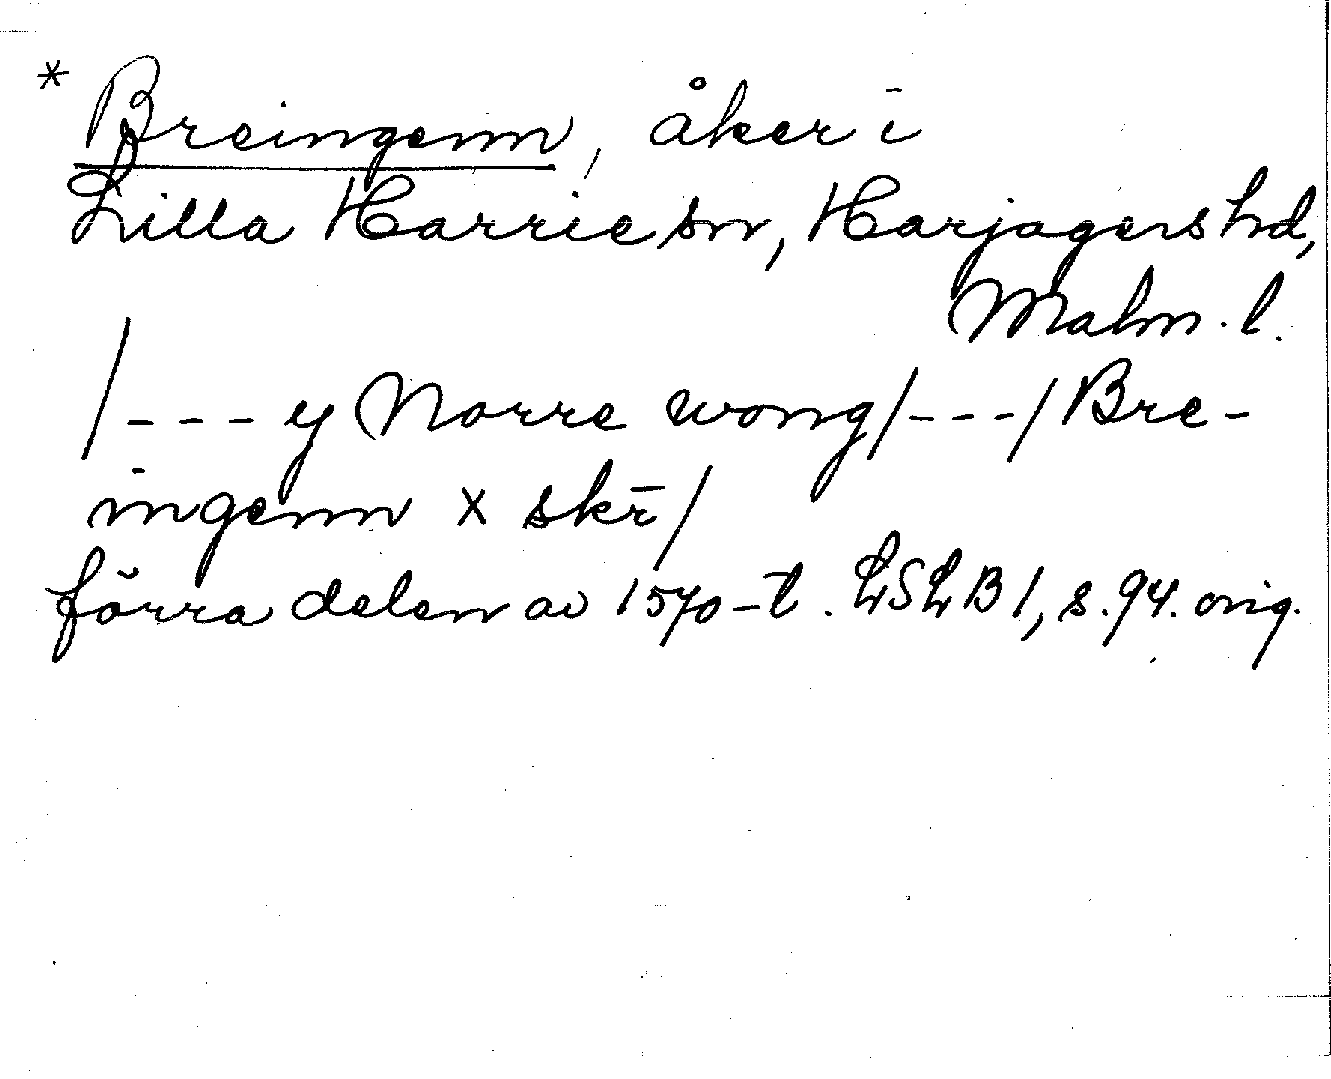 * Breingenn, åker i
Lilla Harrie sn, Harjagers hd,
Malm. l.
/--- y Norre wong/---/ Bre-
ingenn x skr̄/
förra delen av 1570-t. LSLB 1, s. 94. orig.